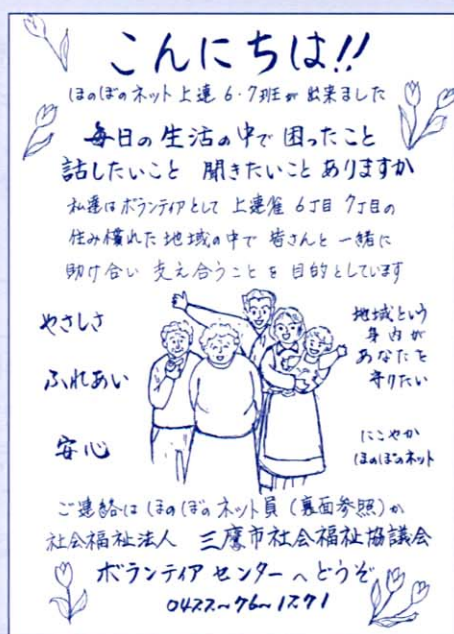 こんにちは!!
ほのぼのネット上連6・7班が出来ました
毎日の生活の中で困ったこと
話したいこと 聞きたいこと ありますか
私達はボランティアとして 上連雀 6丁目 7丁目の
住み慣れた地域の中で 皆さんと 一緒に
助け合い 支え合うことを目的としています
やさしさ
ふれあい
安心
地域という
身内が
あなたを
守りたい
にこやか
ほのぼのネット
ご連絡は ほのぼのネット員 (裏面参照) か
社会福祉法人 三鷹市社会福祉協議会
ボランティア センターへ どうぞ
0422~76~1271